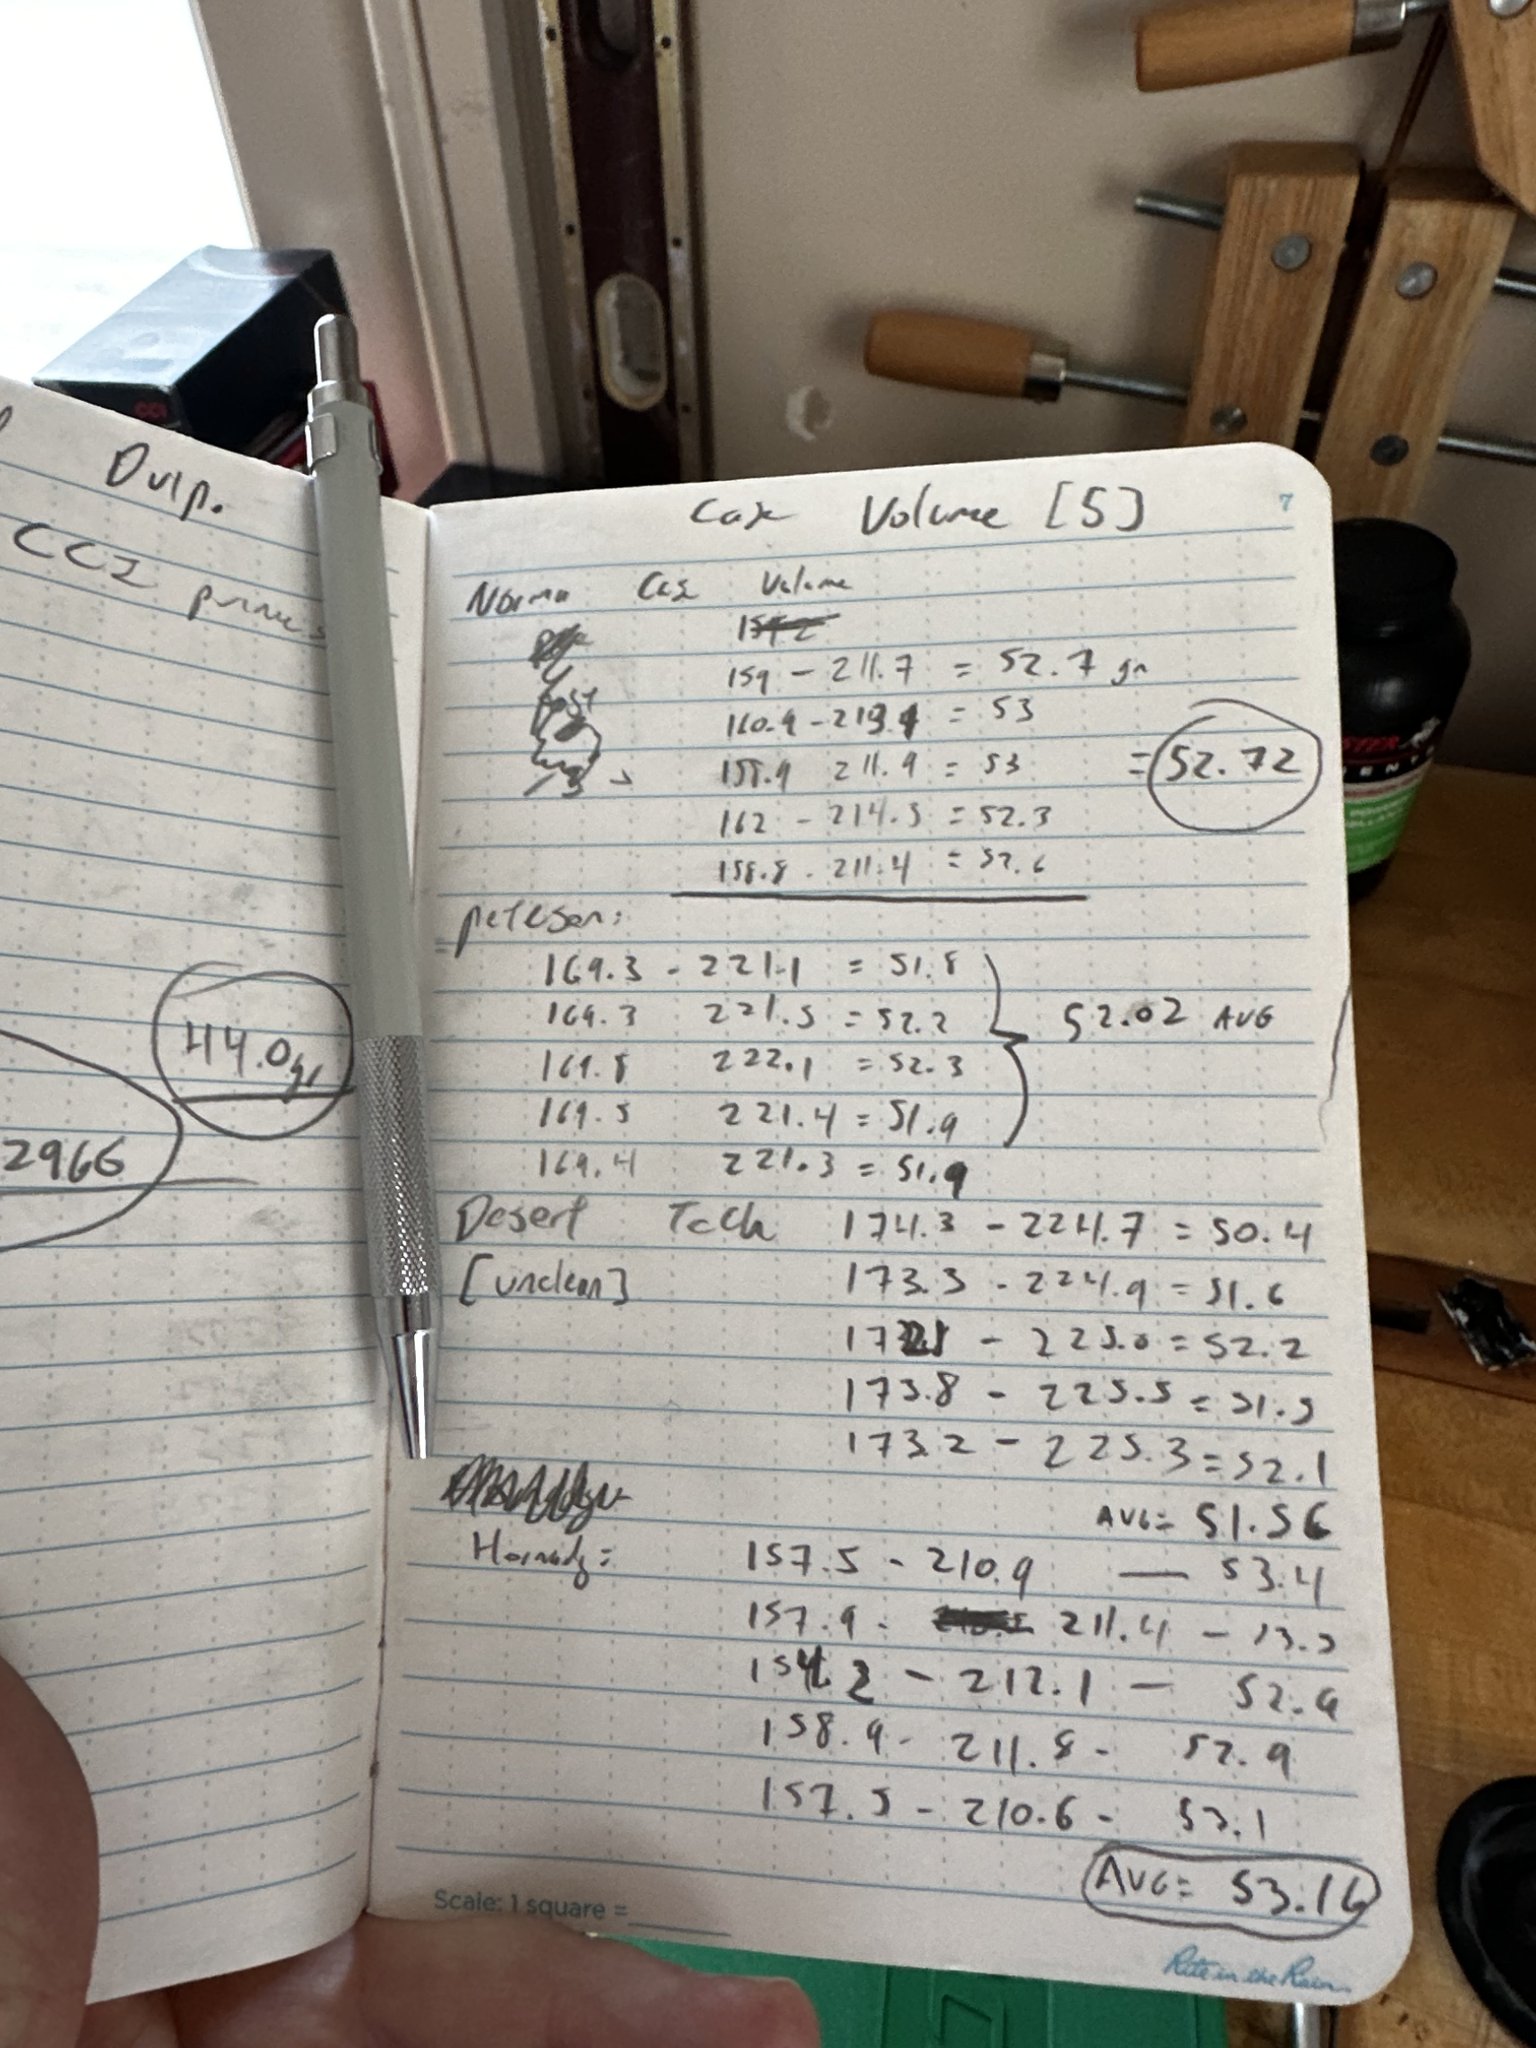 Dulp.
CCI primers
44.0gr
2966
Case Volume [5]
7
Norma Case Volume
159 - 211.7 = 52.7 gr
160.9 - 213.9 = 53
158.9 211.9 = 53
= 52.72
162 - 214.3 = 52.3
158.8 - 211.4 = 52.6
peterson:
169.3 - 221.1 = 51.8
169.3 221.5 = 52.2
52.02 AVG
169.8 222.1 = 52.3
169.5 221.4 = 51.9
169.4 221.3 = 51.9
Desert Tech 174.3 - 224.7 = 50.4
[unclean] 173.3 - 224.9 = 51.6
- 225.0 = 52.2
173.8 - 225.5 = 51.5
173.2 - 225.3 = 52.1
AVG = 51.56
Hornady: 157.5 - 210.9 — 53.4
157.9 - 211.4 - 53.5
- 212.1 - 52.9
158.9 - 211.8 - 52.9
157.5 - 210.6 - 53.1
AVG = 53.16
Scale: 1 square =
Rite in the Rain
CCI